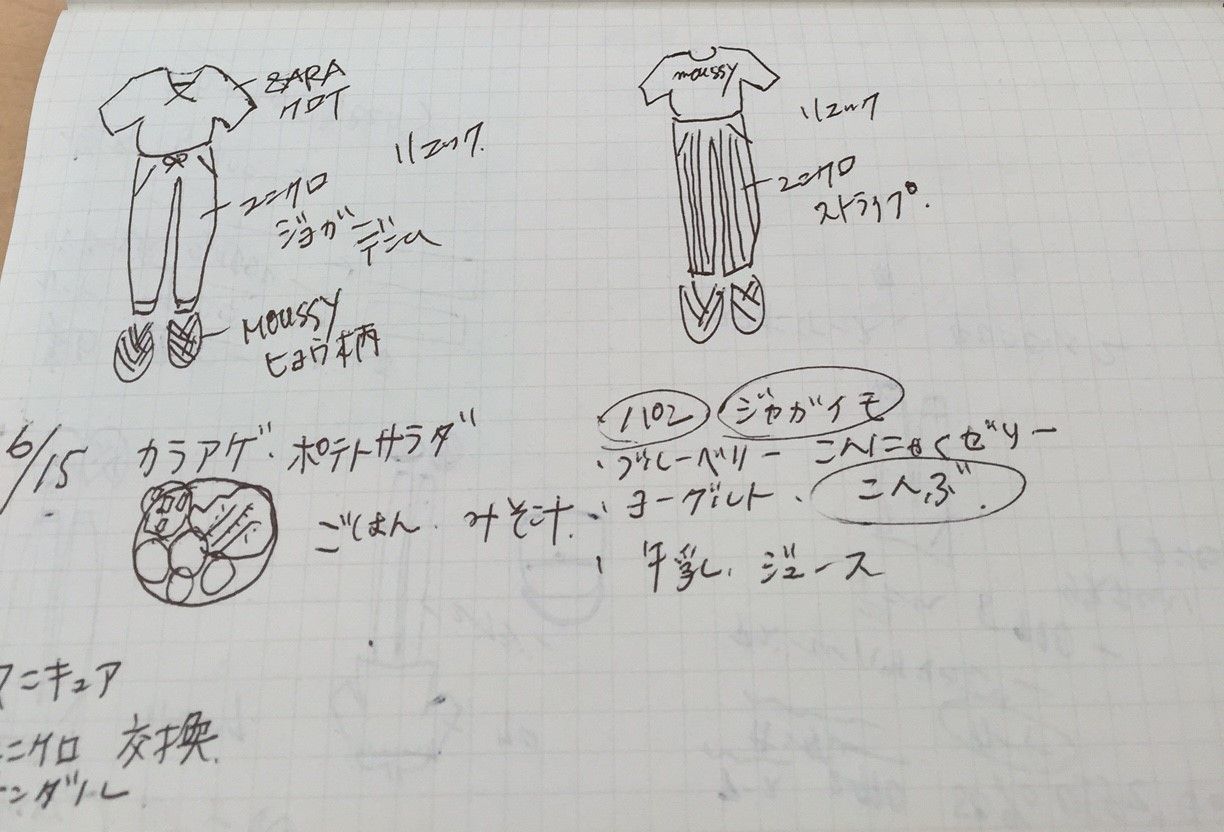 ZARA
クロT
リュック.
ユニクロ
ジョガー
デニム
MOUSSY
ヒョウ柄
moussy
リュック
ユニクロ
ストライプ.
6/15 カラアゲ.ポテトサラダ
ごはん.みそ汁.
ジャガイモ
・ブルーベリー こんにゃくゼリー
・ヨーグルト. こんぶ.
・牛乳.ジュース
マニキュア
ユニクロ 交換.
サンダル